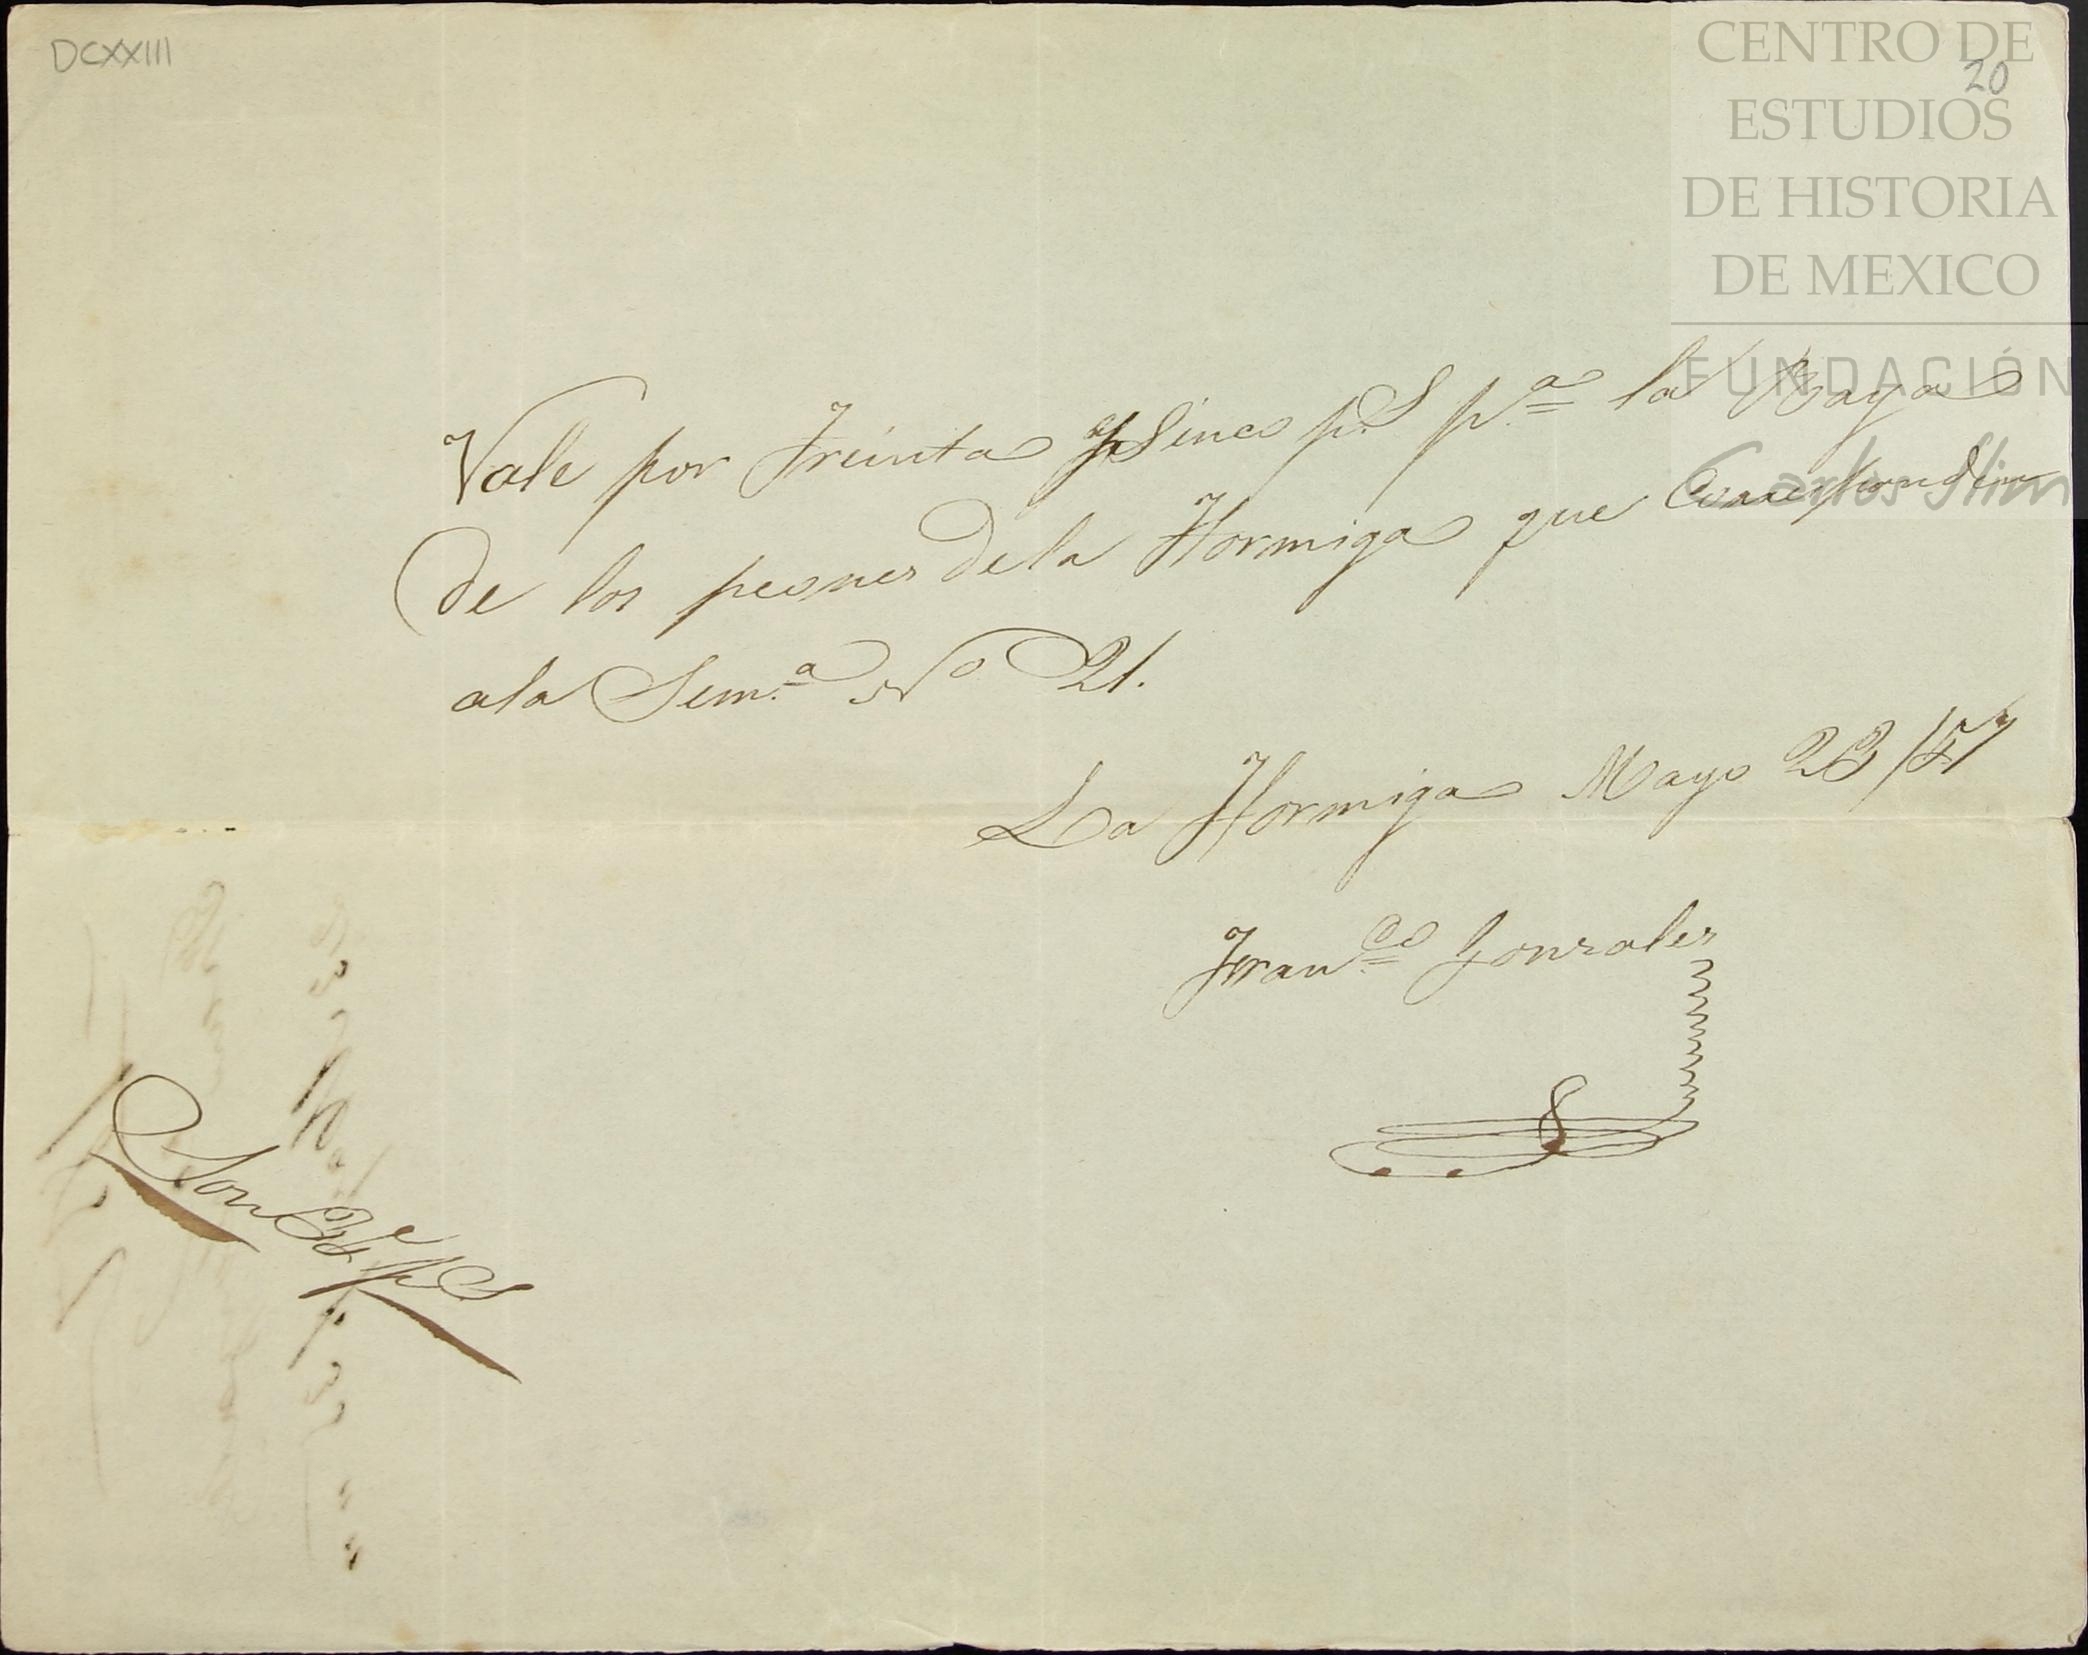 DCXXIII
20
CENTRO DE
ESTUDIOS
DE HISTORIA
DE MEXICO
FUNDACIÓN
Carlos Slim
Vale por Treinta y Sinco p.S p.ª la Raya
de los peones de la Hormiga que Corresponden
ala Sem.ª No 21.
La Hormiga Mayo 23/57
Fran.co Gonzales
Son 35 pS